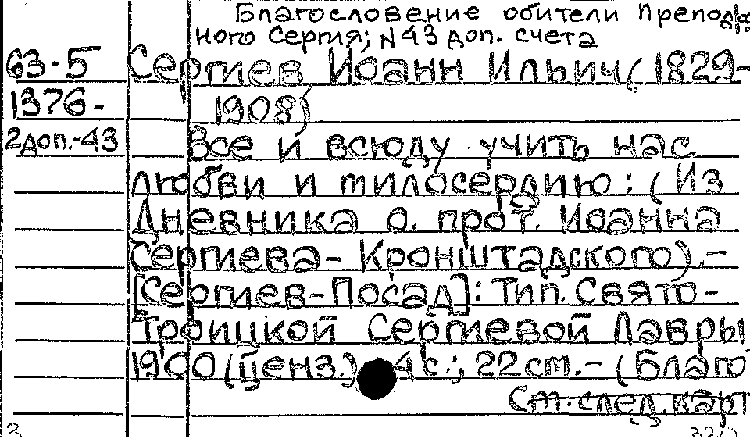 Благословение обители Препод
ного Сергия; N 43 доп. счета
63-5 Сергиев Иоанн Ильич (1829-
1376- 1908)
2доп.-43 Все и всюду учить нас
любви и милосердию: (Из
Дневника о. прот. Иоанна
Сергиева-Кронштадского).-
[Сергиев-Посад]: Тип. Свято-
Троицкой Сергиевой Лавры
1900 (ценз.) 4с.; 22 см.-(Благо
См. след. карт